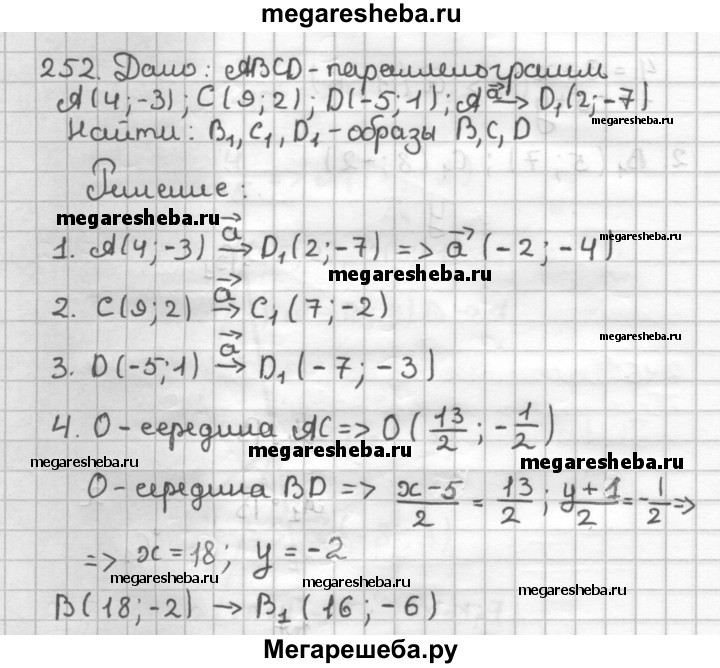 megaresheba.ru
252. Дано: ABCD - параллелограмм
A(4;-3); C(9;2); D(-5;1); A →a⃗ D₁(2;-7)
megaresheba.ru
Найти: B₁, C₁, D₁ - образы B, C, D
Решение:
megaresheba.ru
megaresheba.ru
1. A(4;-3) →a⃗ D₁(2;-7) => a⃗(-2;-4)
megaresheba.ru
2. C(9;2) →a⃗ C₁(7;-2)
megaresheba.ru
3. D(-5;1) →a⃗ D₁(-7;-3)
4. O - середина AC => O(13/2; -1/2)
megaresheba.ru
megaresheba.ru
O - середина BD => x-5/2 = 13/2; y+1/2 = -1/2 =>
megaresheba.ru
=> x = 18; y = -2
megaresheba.ru
megaresheba.ru
megaresheba.ru
B(18;-2) → B₁(16;-6)
Мегарешеба.ру